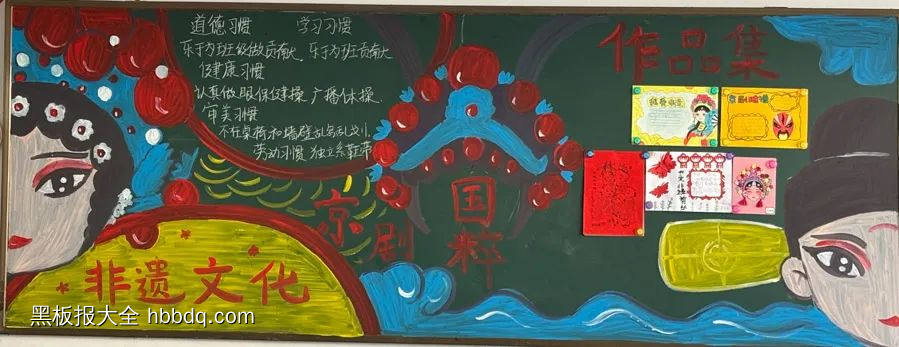 道德习惯 学习习惯
乐于为班级做贡献 乐于为班贡献
健康习惯
认真做眼保健操 广播体操
审美习惯
不在桌椅和墙壁乱写乱
劳动习惯 独立系鞋带
作品集
京剧
国粹
非遗文化
黑板报大全 hbbdq.com